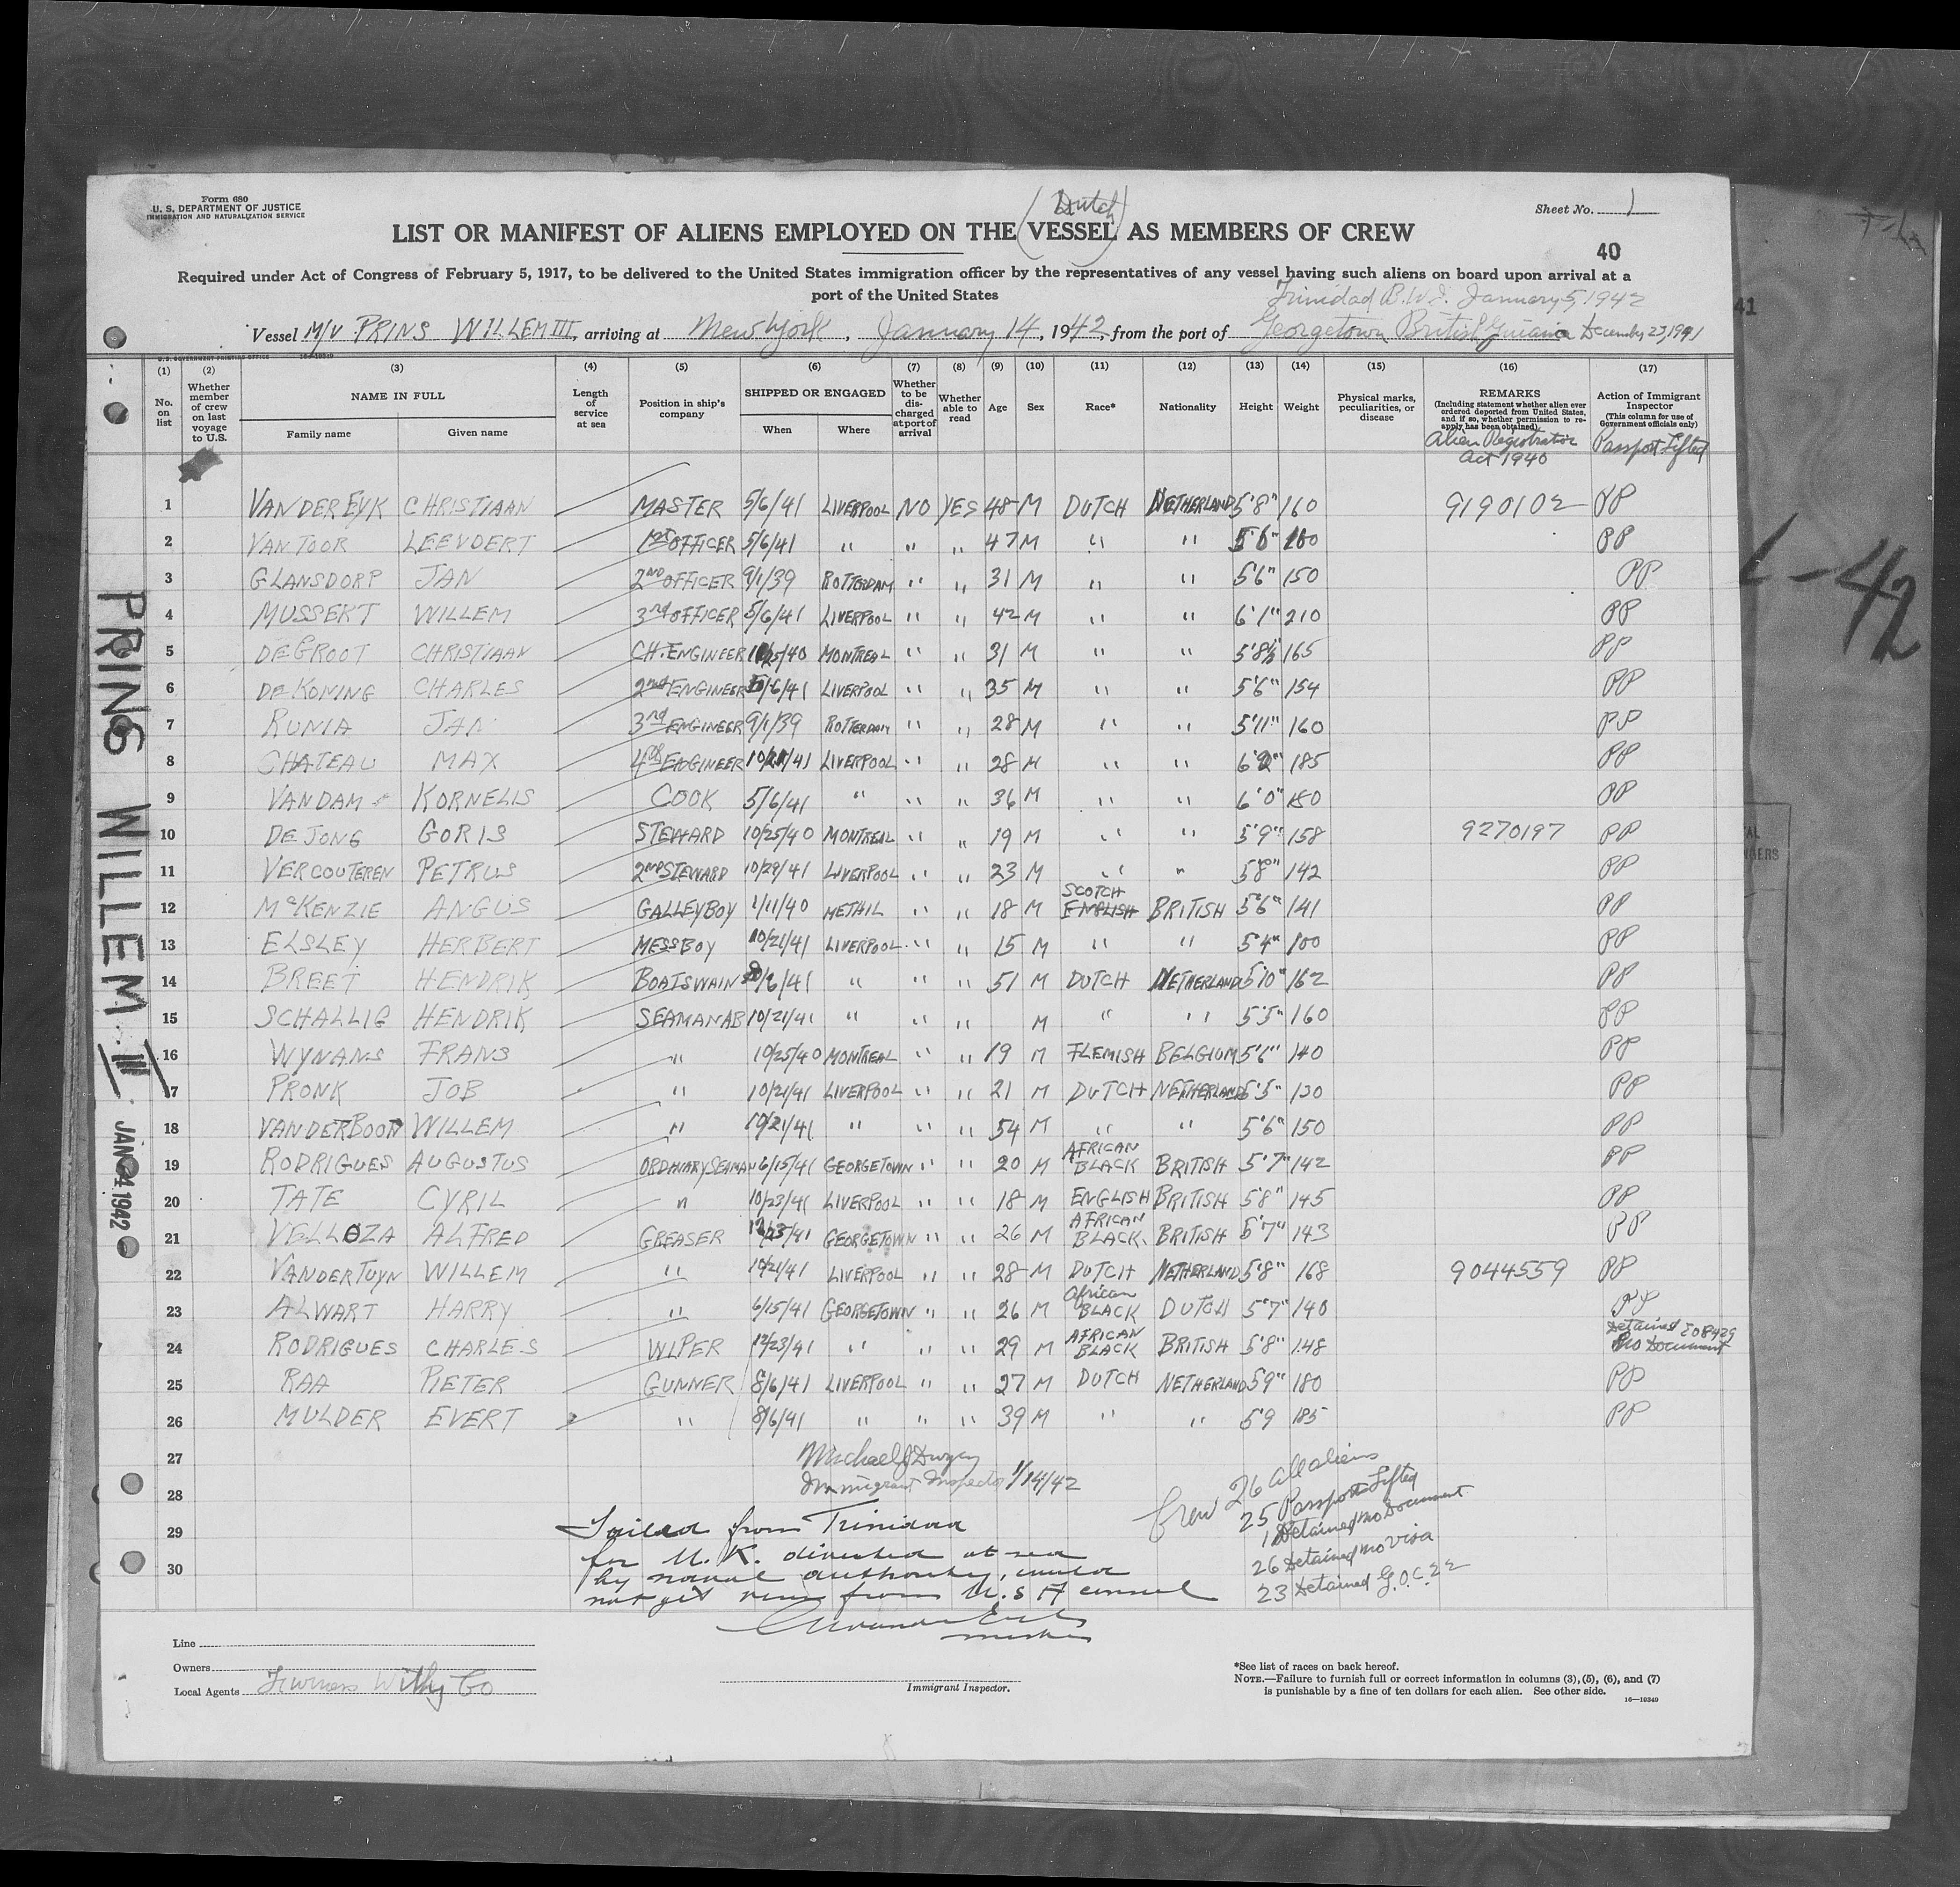 Form 680
U. S. DEPARTMENT OF JUSTICE
IMMIGRATION AND NATURALIZATION SERVICE
Sheet No. 1
(Dutch)
LIST OR MANIFEST OF ALIENS EMPLOYED ON THE VESSEL AS MEMBERS OF CREW
40
Required under Act of Congress of February 5, 1917, to be delivered to the United States immigration officer by the representatives of any vessel having such aliens on board upon arrival at a
port of the United States
Trinidad B.W.I. January 5, 1942
41
Vessel M/V PRINS WILLEM III, arriving at New York, January 14, 1942, from the port of Georgetown British Guiana December 23, 1941
U.S. GOVERNMENT PRINTING OFFICE 16-10349
(1) (2) (3) (4) (5) (6) (7) (8) (9) (10) (11) (12) (13) (14) (15) (16) (17)
No. on list
Whether member of crew on last voyage to U.S.
NAME IN FULL
Family name Given name
Length of service at sea
Position in ship's company
SHIPPED OR ENGAGED
When Where
Whether to be discharged at port of arrival
Whether able to read
Age Sex Race* Nationality Height Weight
Physical marks, peculiarities, or disease
REMARKS
(Including statement whether alien ever ordered deported from United States, and if so, whether permission to reapply has been obtained)
Alien Registration Act 1940
Action of Immigrant Inspector
(This column for use of Government officials only)
Passport Lifted
1 VANDER EYK CHRISTIAAN MASTER 5/6/41 LIVERPOOL NO YES 48 M DUTCH NETHERLAND 5'8" 160 9190102 PP
2 VAN TOOR LEENDERT 1st OFFICER 5/6/41 " " " 47 M " " 5'6" PP
3 GLANSDORP JAN 2ND OFFICER 9/1/39 ROTTERDAM " " 31 M " " 5'6" 150 PP
4 MUSSERT WILLEM 3rd OFFICER 5/6/41 LIVERPOOL " " 42 M " " 6'1" 210 PP
5 DE GROOT CHRISTIAAN CH. ENGINEER 10/25/40 MONTREAL " " 31 M " " 5'8½ 165 PP
6 DE KONING CHARLES 2nd ENGINEER 5/6/41 LIVERPOOL " " 35 M " " 5'6" 154 PP
7 RUNIA JAN 3rd ENGINEER 9/1/39 ROTTERDAM " " 28 M " " 5'11" 160 PP
8 CHATEAU MAX 4th ENGINEER 10/21/41 LIVERPOOL " " 28 M " " 6'2" 185 PP
9 VAN DAM KORNELIS COOK 5/6/41 " " " 36 M " " 6'0" 180 PP
10 DE JONG GORIS STEWARD 10/25/40 MONTREAL " " 19 M " " 5'9" 158 9270197 PP
11 VERCOUTEREN PETRUS 2ND STEWARD 10/29/41 LIVERPOOL " " 23 M " " 5'8" 142 PP
12 McKENZIE ANGUS GALLEY BOY 1/11/40 METHIL " " 18 M SCOTCH ENGLISH BRITISH 5'6" 141 PP
13 ELSLEY HERBERT MESSBOY 10/21/41 LIVERPOOL " " 15 M " " 5'4" 100 PP
14 BREET HENDRIK BOATSWAIN 8/6/41 " " " 51 M DUTCH NETHERLAND 5'10" 162 PP
15 SCHALLIG HENDRIK SEAMAN AB 10/21/41 " " " M " " 5'5" 160 PP
16 WYNANS FRANS " 10/25/40 MONTREAL " " 19 M FLEMISH BELGIUM 5'6" 140 PP
17 PRONK JOB " 10/21/41 LIVERPOOL " " 21 M DUTCH NETHERLAND 5'5" 130 PP
18 VANDERBOOM WILLEM " 10/21/41 " " " 54 M " " 5'6" 150 PP
19 RODRIGUES AUGUSTUS ORDINARY SEAMAN 6/15/41 GEORGETOWN " " 20 M AFRICAN BLACK BRITISH 5'7" 142 PP
20 TATE CYRIL " 10/23/41 LIVERPOOL " " 18 M ENGLISH BRITISH 5'8" 145 PP
21 VELLOZA ALFRED GREASER 12/23/41 GEORGETOWN " " 26 M AFRICAN BLACK. BRITISH 5'7" 143 PP
22 VANDERTUYN WILLEM " 10/21/41 LIVERPOOL " " 28 M DUTCH NETHERLAND 5'8" 168 9044559 PP
23 ALWART HARRY " 6/15/41 GEORGETOWN " " 26 M African BLACK DUTCH 5'7" 140 PP
24 RODRIGUES CHARLES WIPER 12/23/41 " " " 29 M AFRICAN BLACK BRITISH 5'8" 148 Detained No Document
25 RAA PIETER GUNNER 8/6/41 LIVERPOOL " " 27 M DUTCH NETHERLAND 5'9" 180 PP
26 MULDER EVERT " 8/6/41 " " " 39 M " " 5'9 185 PP
27
28
29
30
Michael J Dwyer
Immigrant Inspector 1/14/42
Crew 26 all aliens
25 Passports Lifted
1 Detained no Document
26 Detained no visa
23 Detained G.O.C. 22
Sailed from Trinidad
for U.K. directed at sea
by naval authority, could
not get visa from U.S A consul
Line
Owners
Local Agents Furness Withy Co
Immigrant Inspector.
*See list of races on back hereof.
NOTE.—Failure to furnish full or correct information in columns (3), (5), (6), and (7)
is punishable by a fine of ten dollars for each alien. See other side.
16—10349
PRINS WILLEM III
JAN 14 1942
-42